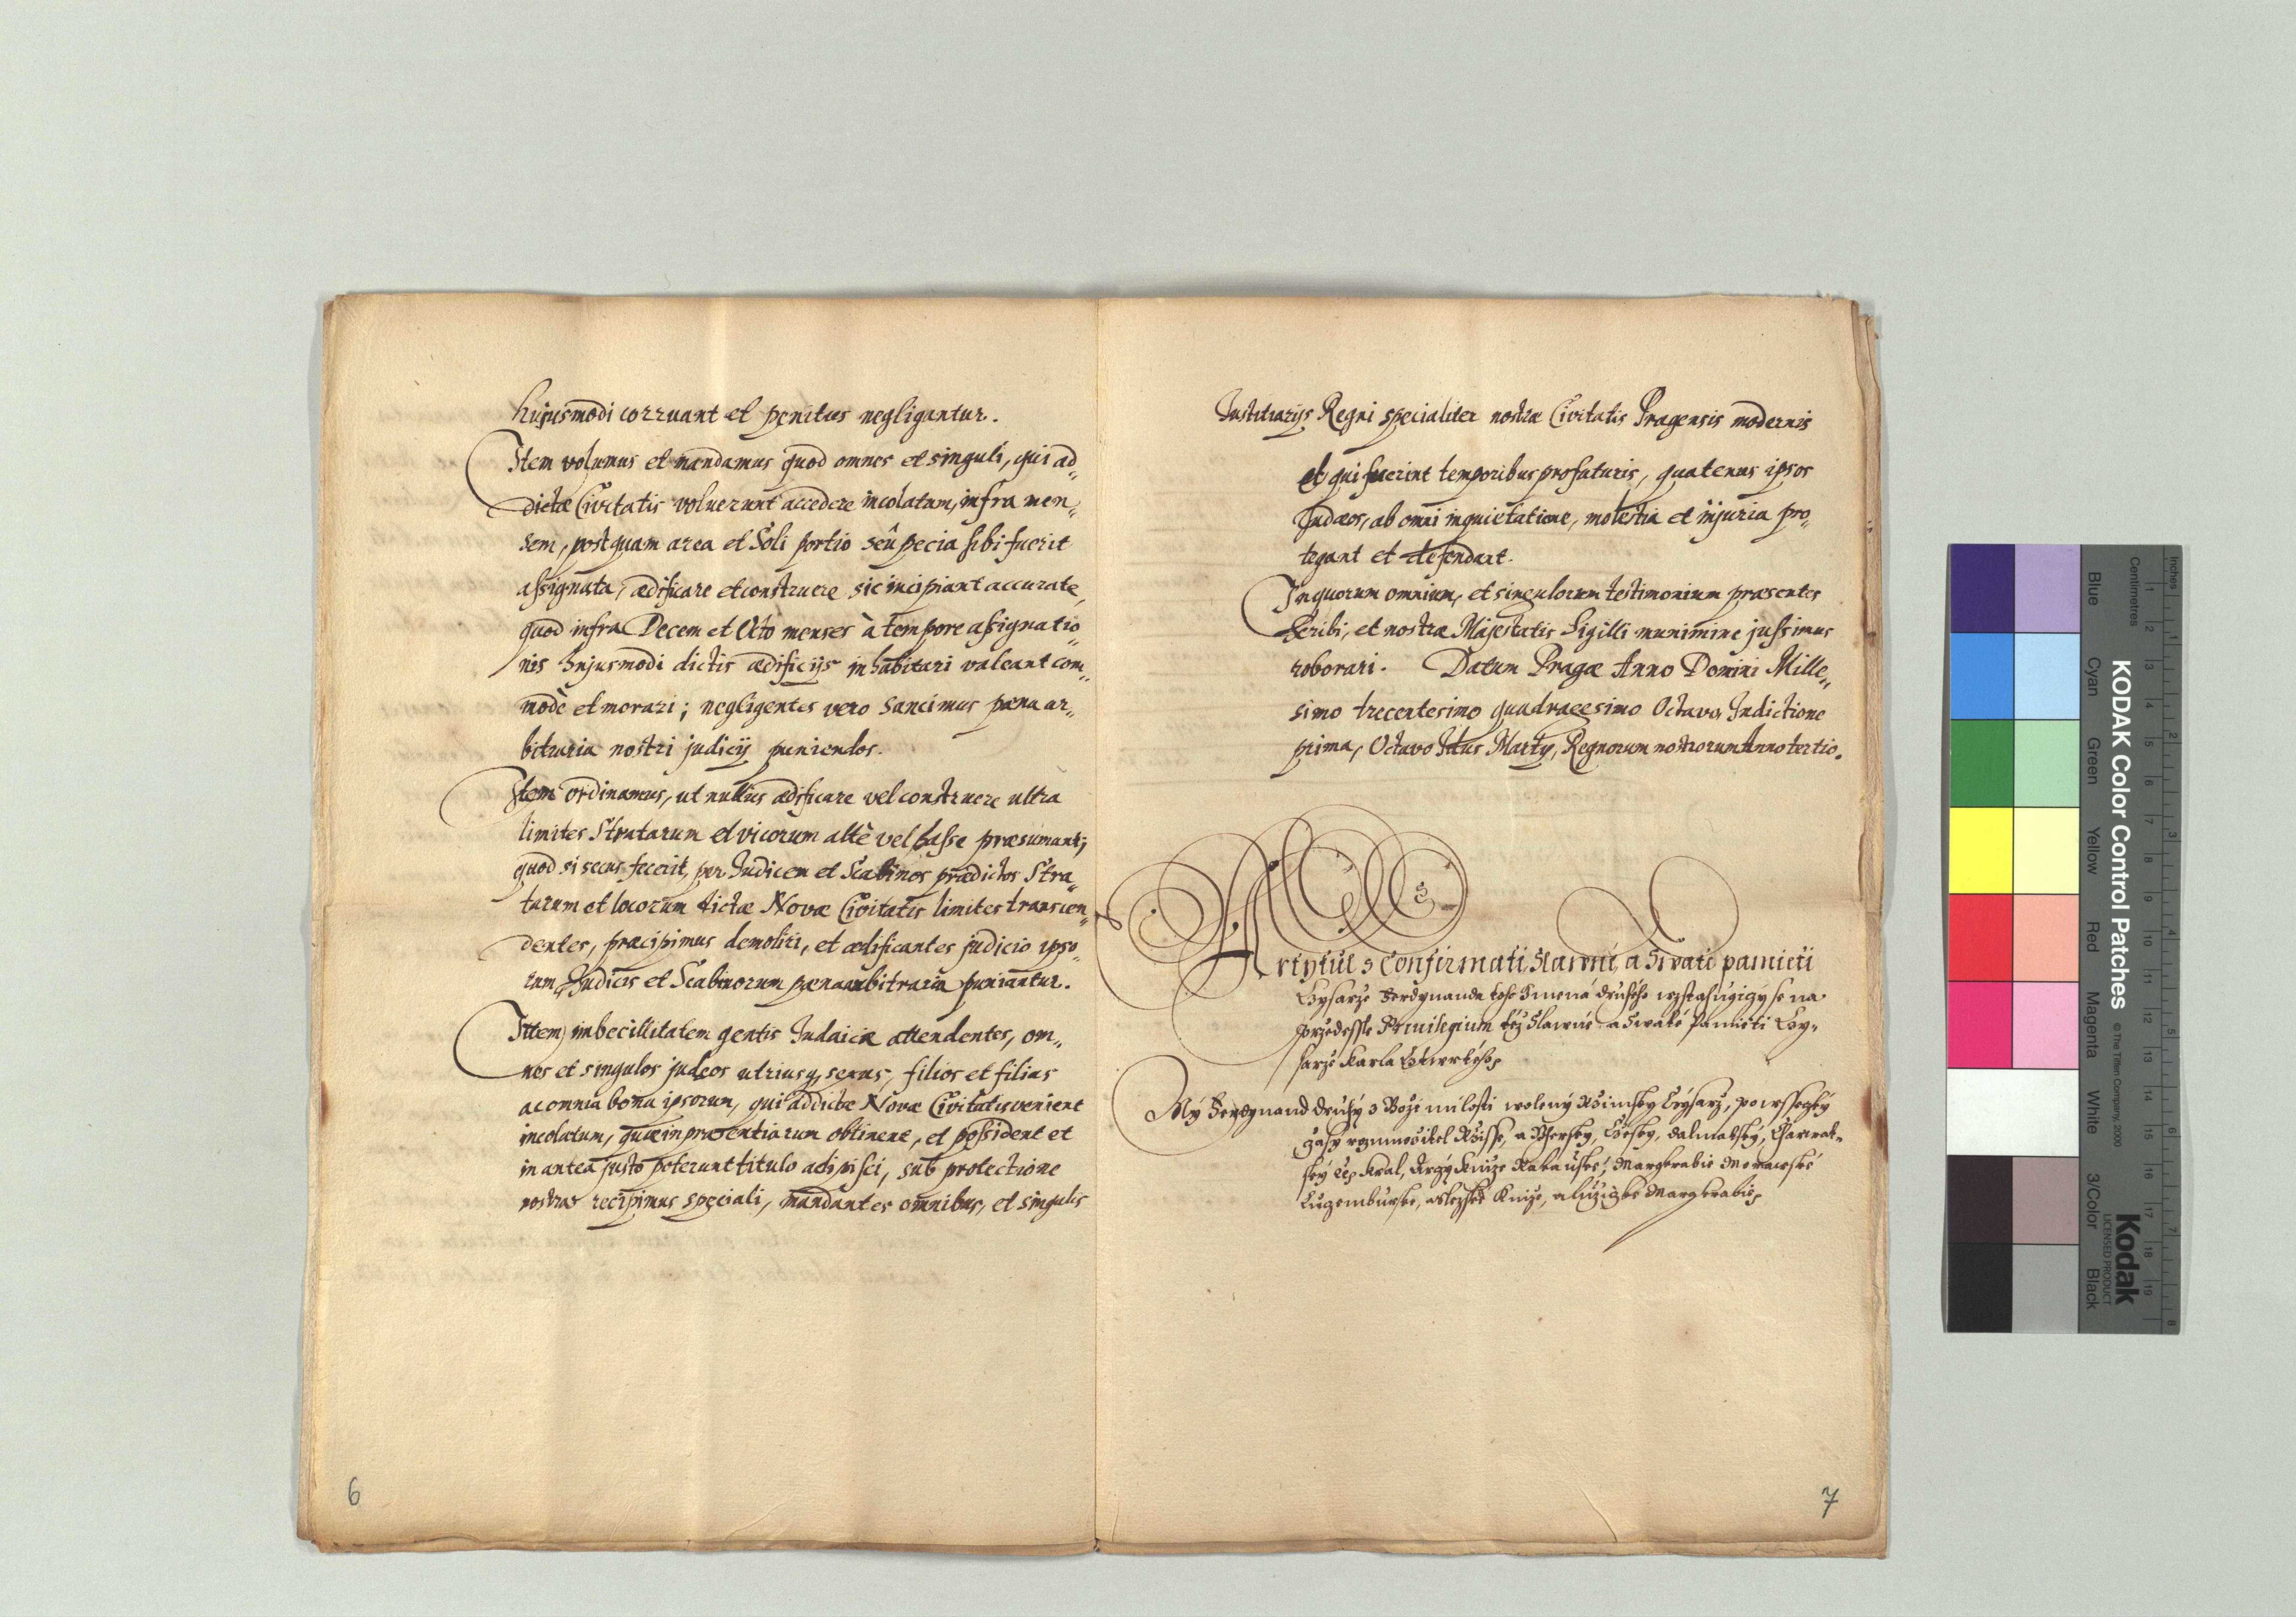 hujusmodi corruant et penitus negligantur.
Item volumus et mandamus quod omnes et singuli, qui ad„
dictæ Civitatis voluerunt accedere incolatum, infra men„
sem, postquam area et Soli portio seû pecia sibi fuerit
assignata, ædificare et construere sic incipiant accurate,
quod infra Decem et Octo menses à tempore assignatio„
nis hujusmodi dictis ædificijs inhabitari valeant com„
modè et morari; negligentes vero sancimus pæna ar„
bitraria nostri judicij puniendos.
Item ordinamus, ut nullus ædificare vel construere ultra
limites Stratarum et vicorum altè vel basse præsumant;
quod si secus fecerit, per Judicem et Scabinos prædictos Stra„
tarum et locorum dictæ Novæ Civitatis limites transcen„
dentes, præcipimus demoliri, et ædificantes judicio ipso„
rum Judicis et Scabinorum pæna arbitraria puniantur.
Item, imbecillitatem gentis Judaicæ attendentes, om„
nes et singulos judæos utriusq, sexus, filios et filias
ac omnia bona ipsorum, qui ad dictæ Novæ Civitatis venient
incolatum, quæ in præsentiarum obtinent, et possident et
in antea justo poterunt titulo adipisci, sub protectione
nostra recipimus speciali, mandantes omnibus, et singulis
6
Justitiarijs Regni specialiter nostræ Civitatis Pragensis modernis
et qui fuerint temporibus profuturis, quatenus ipsos
Judæos, ab omni inquietatione, molestia et injuria pro„
tegant et defendant.
In quorum omnium, et singulorum testimonium præsentes
scribi, et nostræ Majestatis Sigilli munimine jussimus
roborari. Datum Pragæ Anno Domini Mille„
simo trecentesimo quadragesimo Octavo, Indictione
prima, Octavo Idus Martij, Regnorum nostrorum Anno tertio.
Artykul z Confirmati Slawné, a Swaté pamieti
Cysarze Ferdynanda toho Jmena druhého wztahugicy se na
przedessle Privilegium též Slawné a Swaté Pamieti Cy„
sarze Karla Cžtwrtého,
My Ferdynand druhý z Boži milosti wolený Ržimsky Cysarz, po wssecky
Časy rozmnožitel Ržisse, a Uhersky, Cžesky, Dalmatský, Charwat„
ský &c Kral, Arcy Knize Rakauské, Margkrabie Morawské
Lucemburske, a Slezské Knize, a Lužicke Margkrabie,
7
KODAK Color Control Patches
© The Tiffen Company, 2000
Kodak
LICENSED PRODUCT
Blue
Cyan
Green
Yellow
Red
Magenta
White
3/Color
Black
Inches
Centimetres